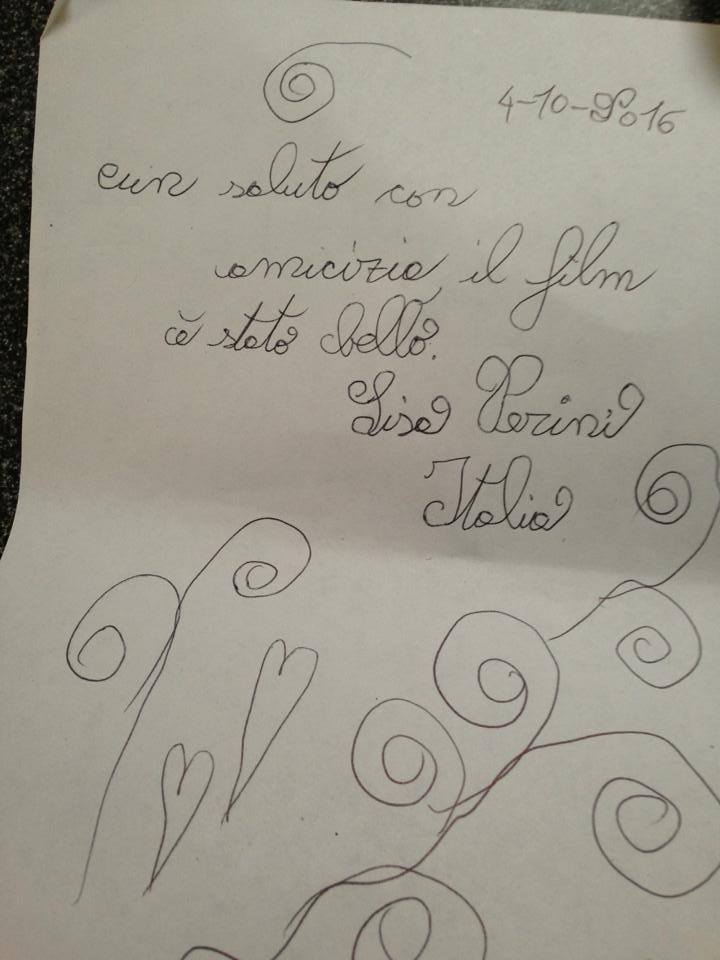 4-10-2016
cun saluto con
amicizia, il film
è stato bello.
Lisa Perini
Italia